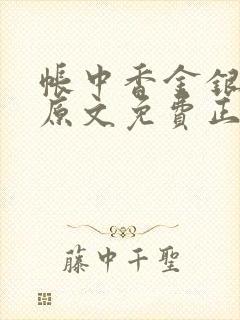 帳中香金銀
原文免費正
藤中千聖